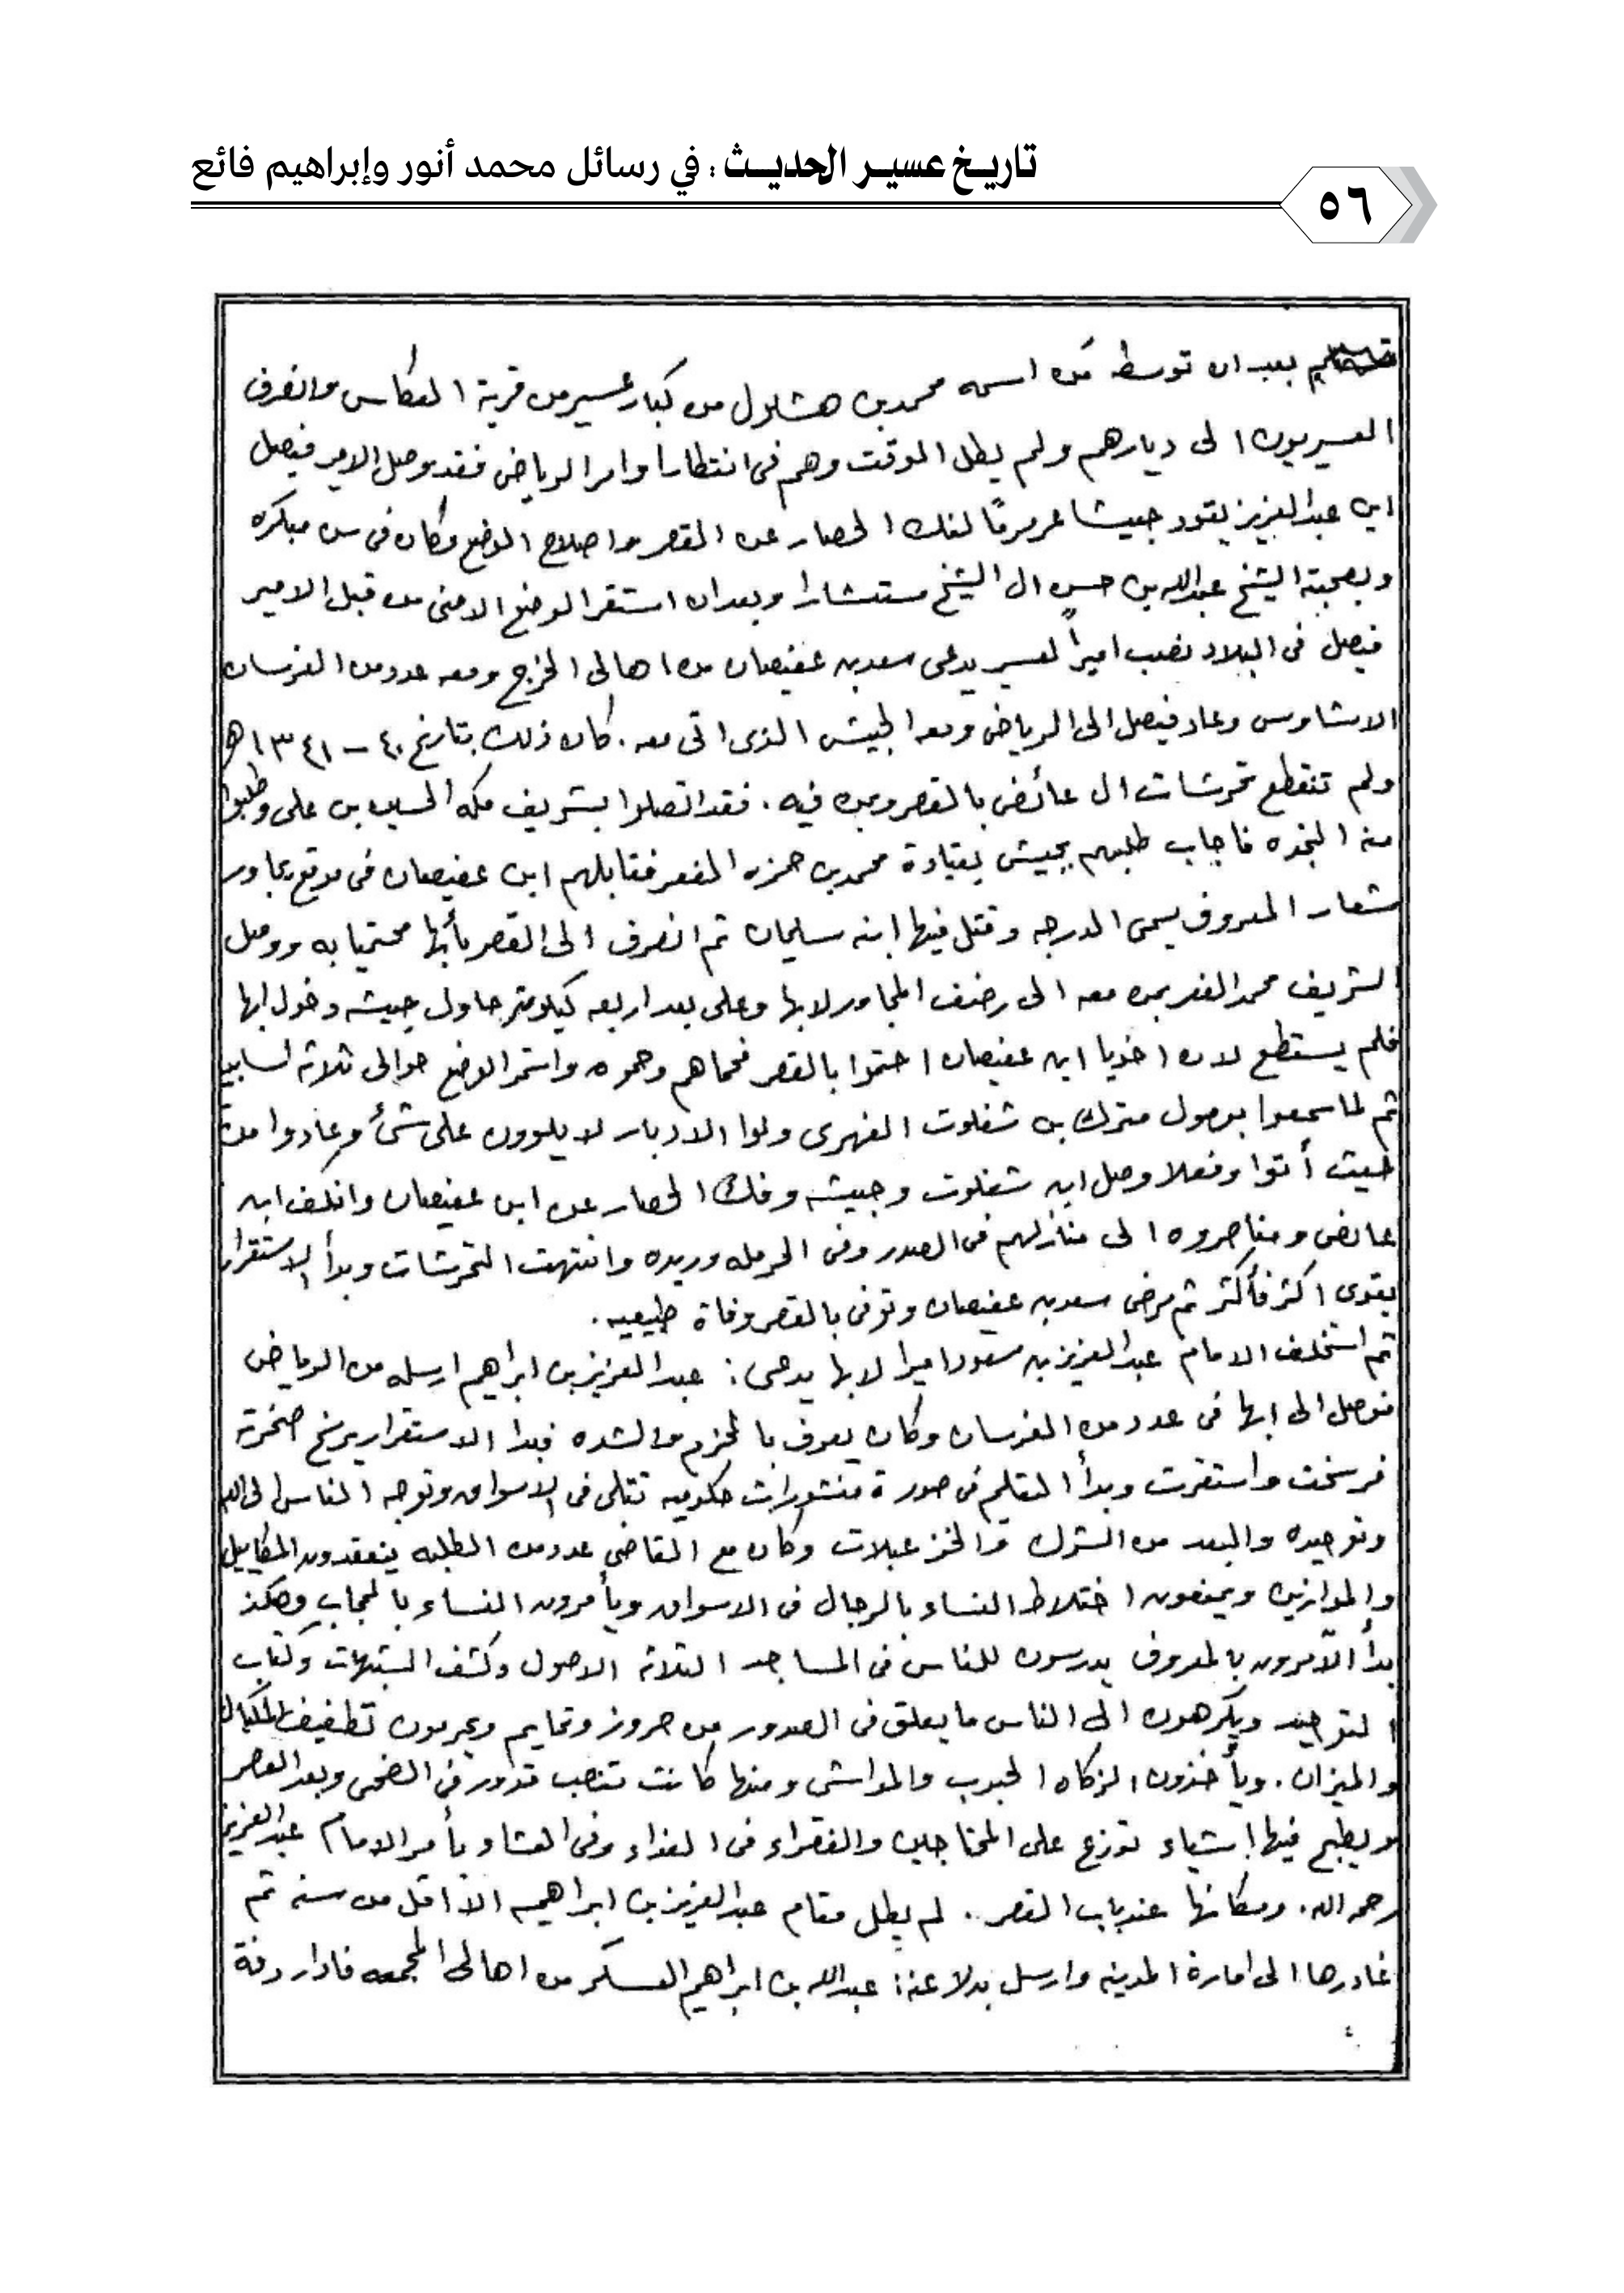 تاريخ عسير الحديث : في رسائل محمد أنور وإبراهيم فائع
٥٦
بعد ان توسط من اسمه محمد بن هشلول من كبار عسير من قرية العكاس وانصرف
العسيريون الى ديارهم ولم يطل الموقف وهم فى انتظار اوامر الرياض فقد وصل الامير فيصل
ابن عبدالعزيز يقود جيشا عرمرمًا لفك الحصار عن القصر واصلاح الوضع وكان فى سن مبكره
وبصحبته الشيخ عبدالله بن حسن ال الشيخ مستشارا وبعد ان استقر الوضع الامنى من قبل الامير
فيصل فى البلاد نصب اميراً لعسير يدعى سعد بن عفيصان من اهالى الخرج ومعه عدد من الفرسان
الاشاوس وعاد فيصل الى الرياض ومعه الجيش الذى اتى معه . كان ذلك بتاريخ ٤٠ - ١٣٤١ هـ
ولم تنقطع تحرشات ال عائض بالقصر وبمن فيه . فقد اتصلوا بشريف مكه الحسين بن على وطلبوا
منه النجده فاجاب طلبهم بجيش بقيادة محمد بن حمزه الفعر فقابلهم ابن عفيصان فى موقع بجاور
شعار المعروف يسمى الدرجه وقتل فيها ابنه سليمان ثم انصرف الى القصر بأبها محتميا به ووصل
الشريف محمد الفعر بمن معه الى رضف المجاور لابها وعلى بعد اربعه كيلومتر حاول جيشه دخول ابها
فلم يستطع لان اخويا ابن عفيصان احتموا بالقصر فحماهم وحموه واستمر الوضع حوالى ثلاثه اسابيع
ثم لما سمعوا بوصول مترك بن شفلوت الفهرى ولوا الادبار لا يلوون على شئ وعادوا من
حيث أتوا وفعلا وصل ابن شفلوت وجيشه وفك الحصار عن ابن عفيصان وانكف ابن
عائض ومناصروه الى منازلهم فى الصدر وفى الحرمله وريده وانتهت التحرشات وبدأ الاستقرار
يقوى اكثر فأكثر ثم مرض سعد بن عفيصان وتوفى بالقصر وفاة طبيعيه .
ثم استخلف الامام عبدالعزيز بن سعود اميرا لابها يدعى : عبدالعزيز بن ابراهيم ارسله من الرياض
فوصل الى ابها فى عدد من الفرسان وكان يعرف بالحزم والشده فبدا الاستقرار يرسخ صخرته
فرسخت واستقرت وبدأ التعليم فى صورة منشورات حكوميه تتلى فى الاسواق وتوجه الناس الى الله
وتوحيده والبعد من الشرك والخزعبلات وكان مع القاضى عدد من الطلبه يتفقدون المكاييل
والموازين ويمنعون اختلاط النساء بالرجال فى الاسواق ويأمرون النساء بالحجاب وهكذا
بدأ الآمرون بالمعروف يدرسون للناس فى المساجد الثلاثه الاصول وكشف الشبهات وكتاب
التوحيد ويكرهون الى الناس ما يعلق فى الصدور من حروز وتمايم ويحرمون تطفيف المكيال
والميزان . ويأخذون الزكاه الحبوب والمواشى ومنها كانت تنصب قدور فى الضحى وبعد العصر
ويطبخ فيها اشياء توزع على المحتاجين والفقراء فى الغداء وفى العشاء بأمر الامام عبدالعزيز
رحمه الله . ومكانها عند باب القصر . لم يطل مقام عبدالعزيز بن ابراهيم الا اقل من سنه ثم
غادرها الى امارة المدينه وارسل بدلا عنه : عبدالله بن ابراهيم العسكر من اهالى المجمعه فادار دفة